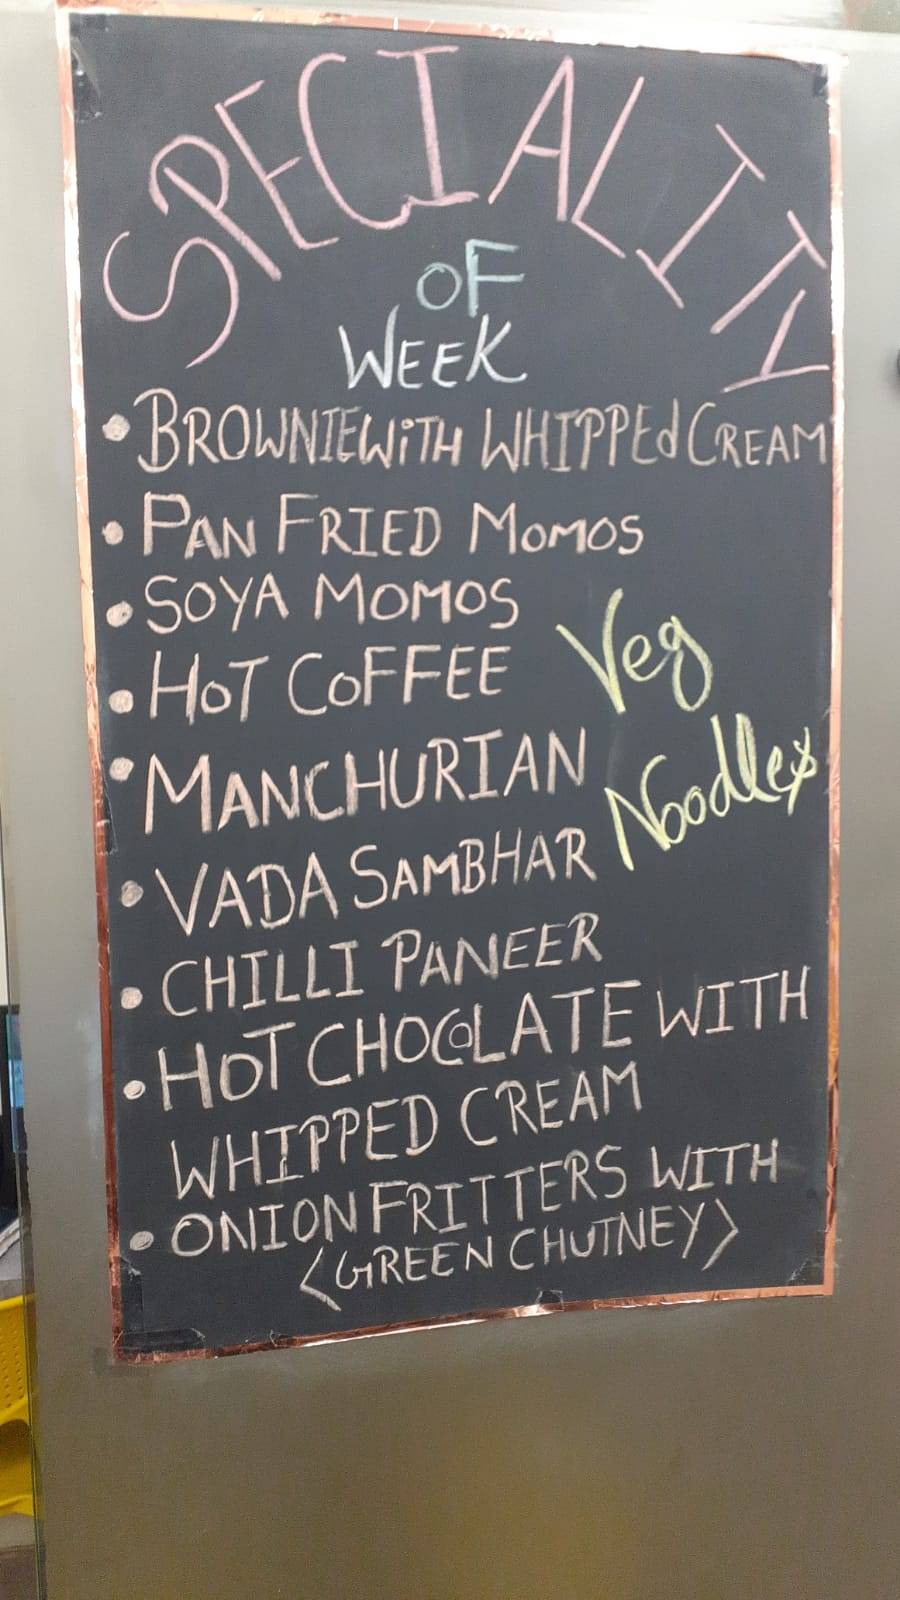 SPECIALITY
OF
WEEK
• BROWNIE WiTH WHIPPEd CREAM
• PAN FRIED MOMOS
• SOYA MOMOS
• HoT CoFFEE
Veg
• MANCHURIAN
Noodles
• VADA SAMBHAR
• CHILLI PANEER
• HOT CHOCOLATE WITH
WHIPPED CREAM
• ONION FRITTERS WITH
<GREEN CHUTNEY>